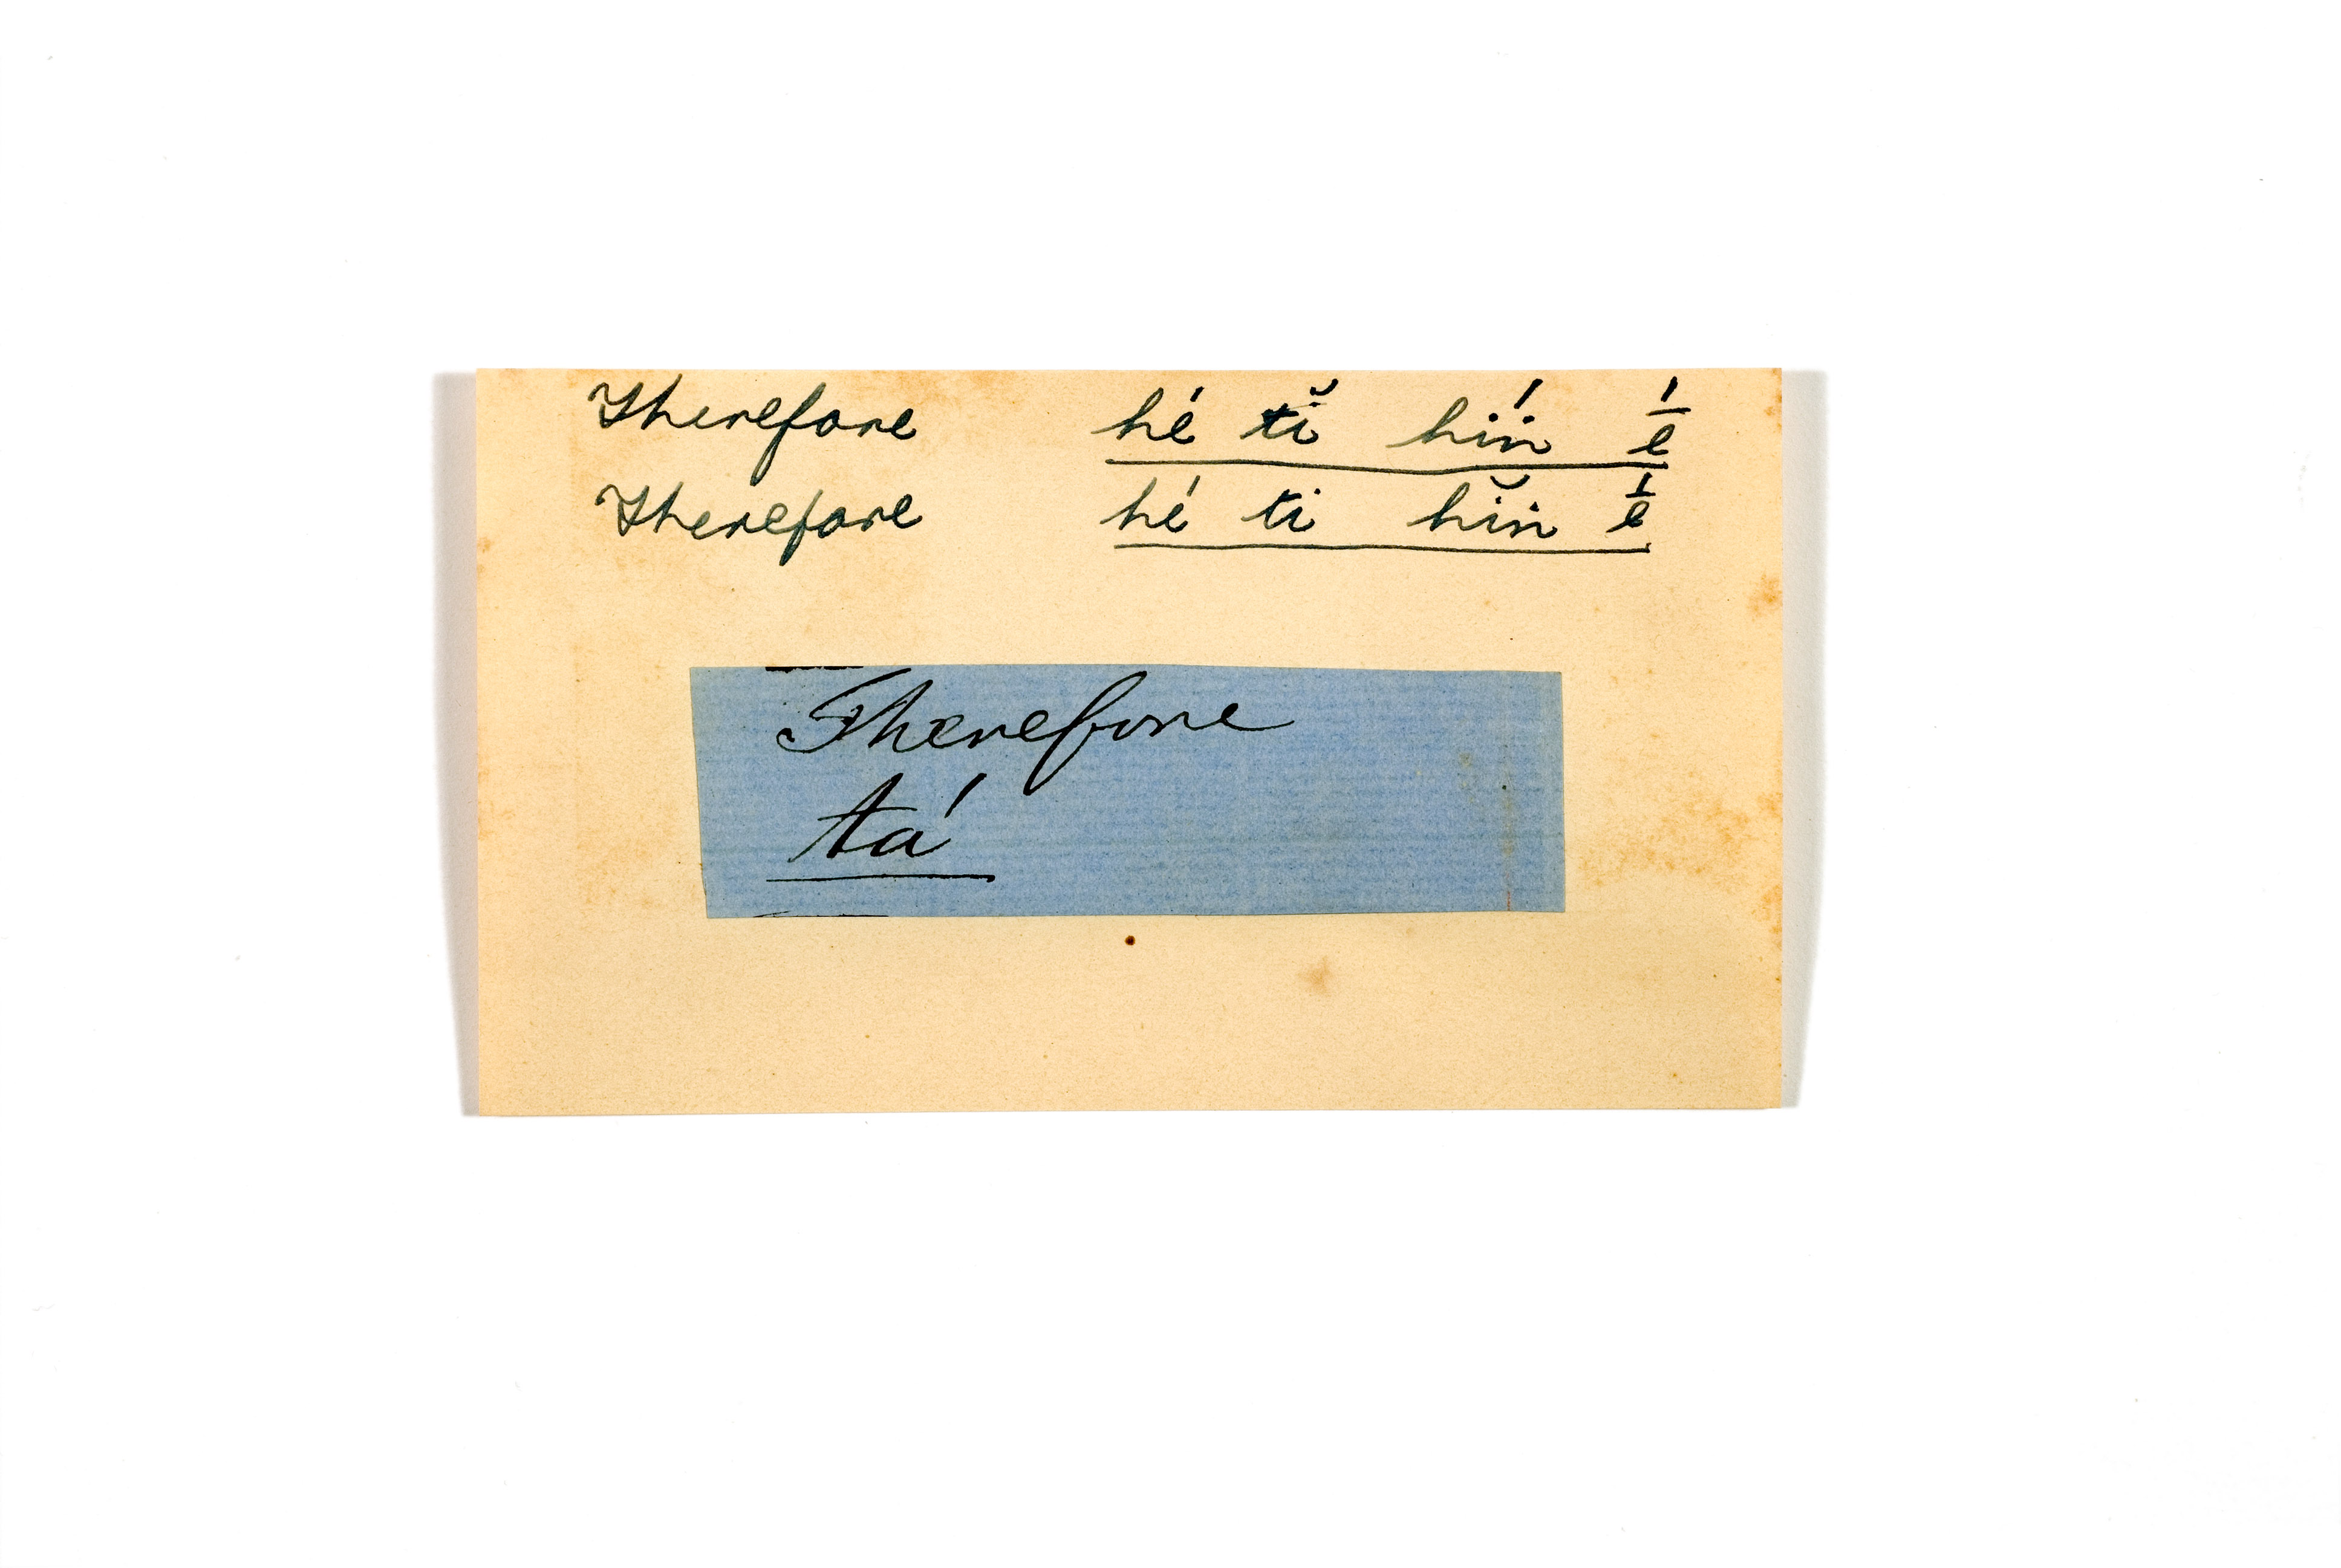 Therefore hé tĭ hiń ḗ
Therefore hé ti hĭn ḗ
Therefore
tá